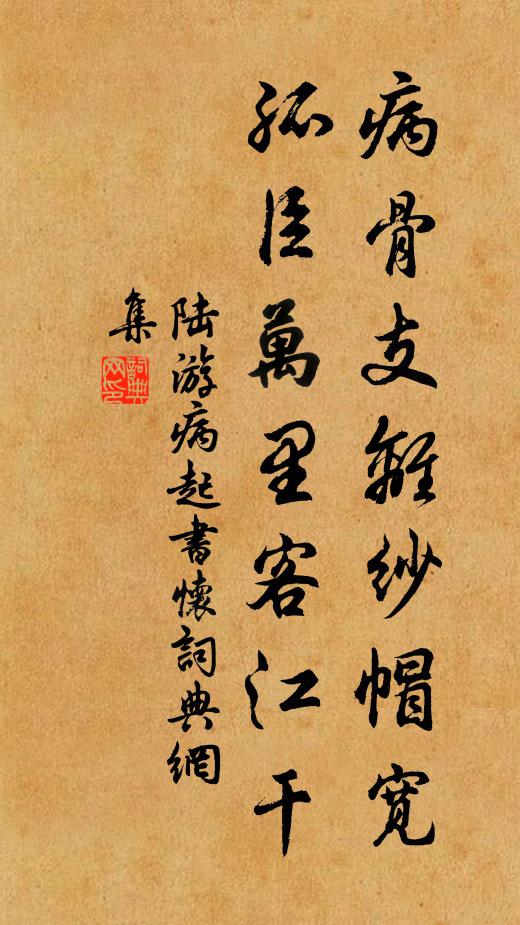 病骨支離紗帽寬
孤臣萬里客江干
陸游病起書懷詞典網
集
詞典
网印